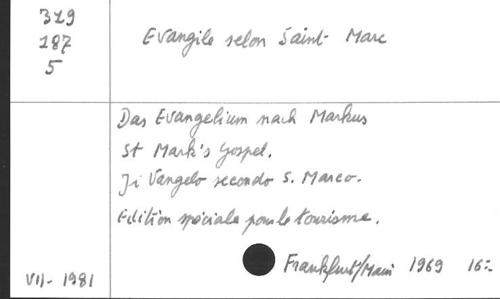 319
187
5
Evangile selon Saint Marc
Das Evangelium nach Markus
St Mark's Gospel.
Ji Vangelo secondo S. Marco.
Edition spéciale pour le tourisme.
Frankfurt/Main 1969 16:-
VII- 1981